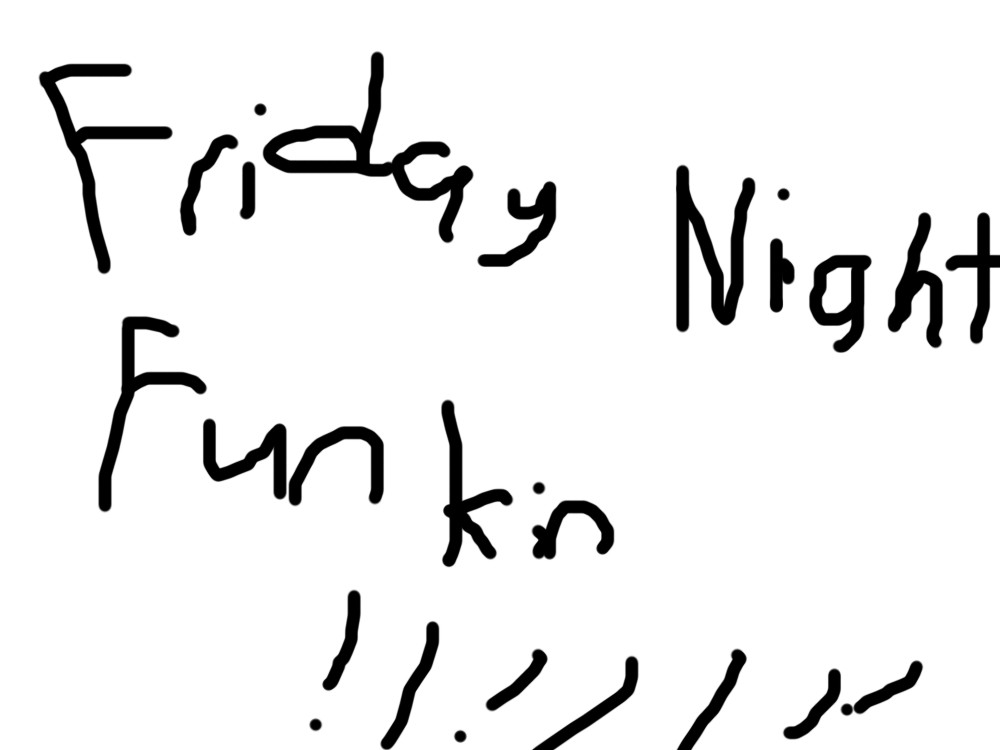 Friday Night
Funkin
!!!!!!!